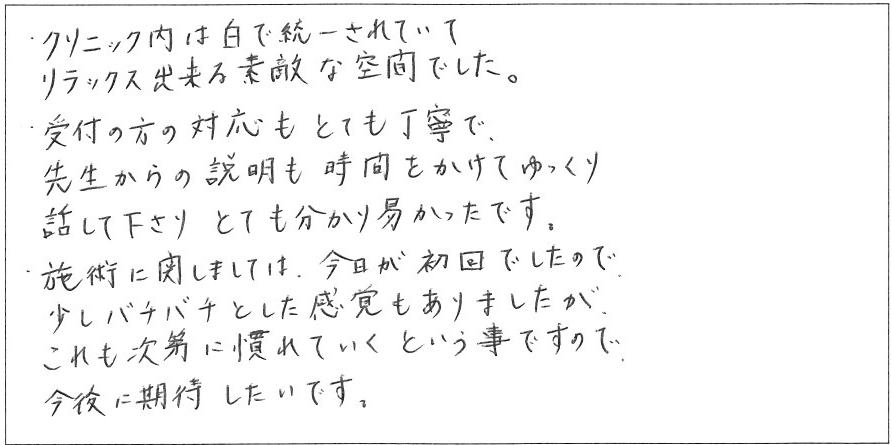 ・クリニック内は白で統一されていて
リラックス出来る素敵な空間でした。
・受付の方の対応もとても丁寧で、
先生からの説明も時間をかけてゆっくり
話して下さりとても分かり易かったです。
・施術に関しましては、今日が初回でしたので、
少しバチバチとした感覚もありましたが、
これも次第に慣れていくという事ですので、
今後に期待したいです。